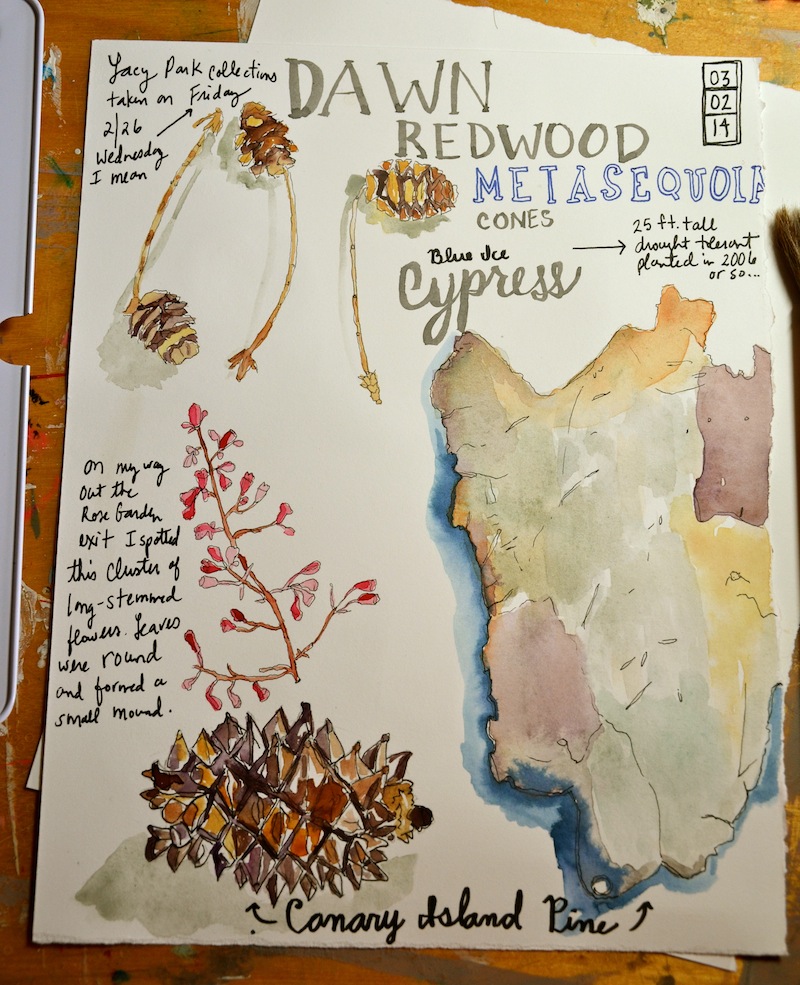 Lacy Park collections
taken on Friday
2/26
Wednesday
I mean
DAWN
REDWOOD
METASEQUOIA
CONES
03
02
14
Blue Ice
Cypress
25 ft. tall
drought tolerant
planted in 2006
or so...
On my way
out the
Rose Garden
exit I spotted
this cluster of
long-stemmed
flowers. Leaves
were round
and formed a
small mound.
Canary Island Pine